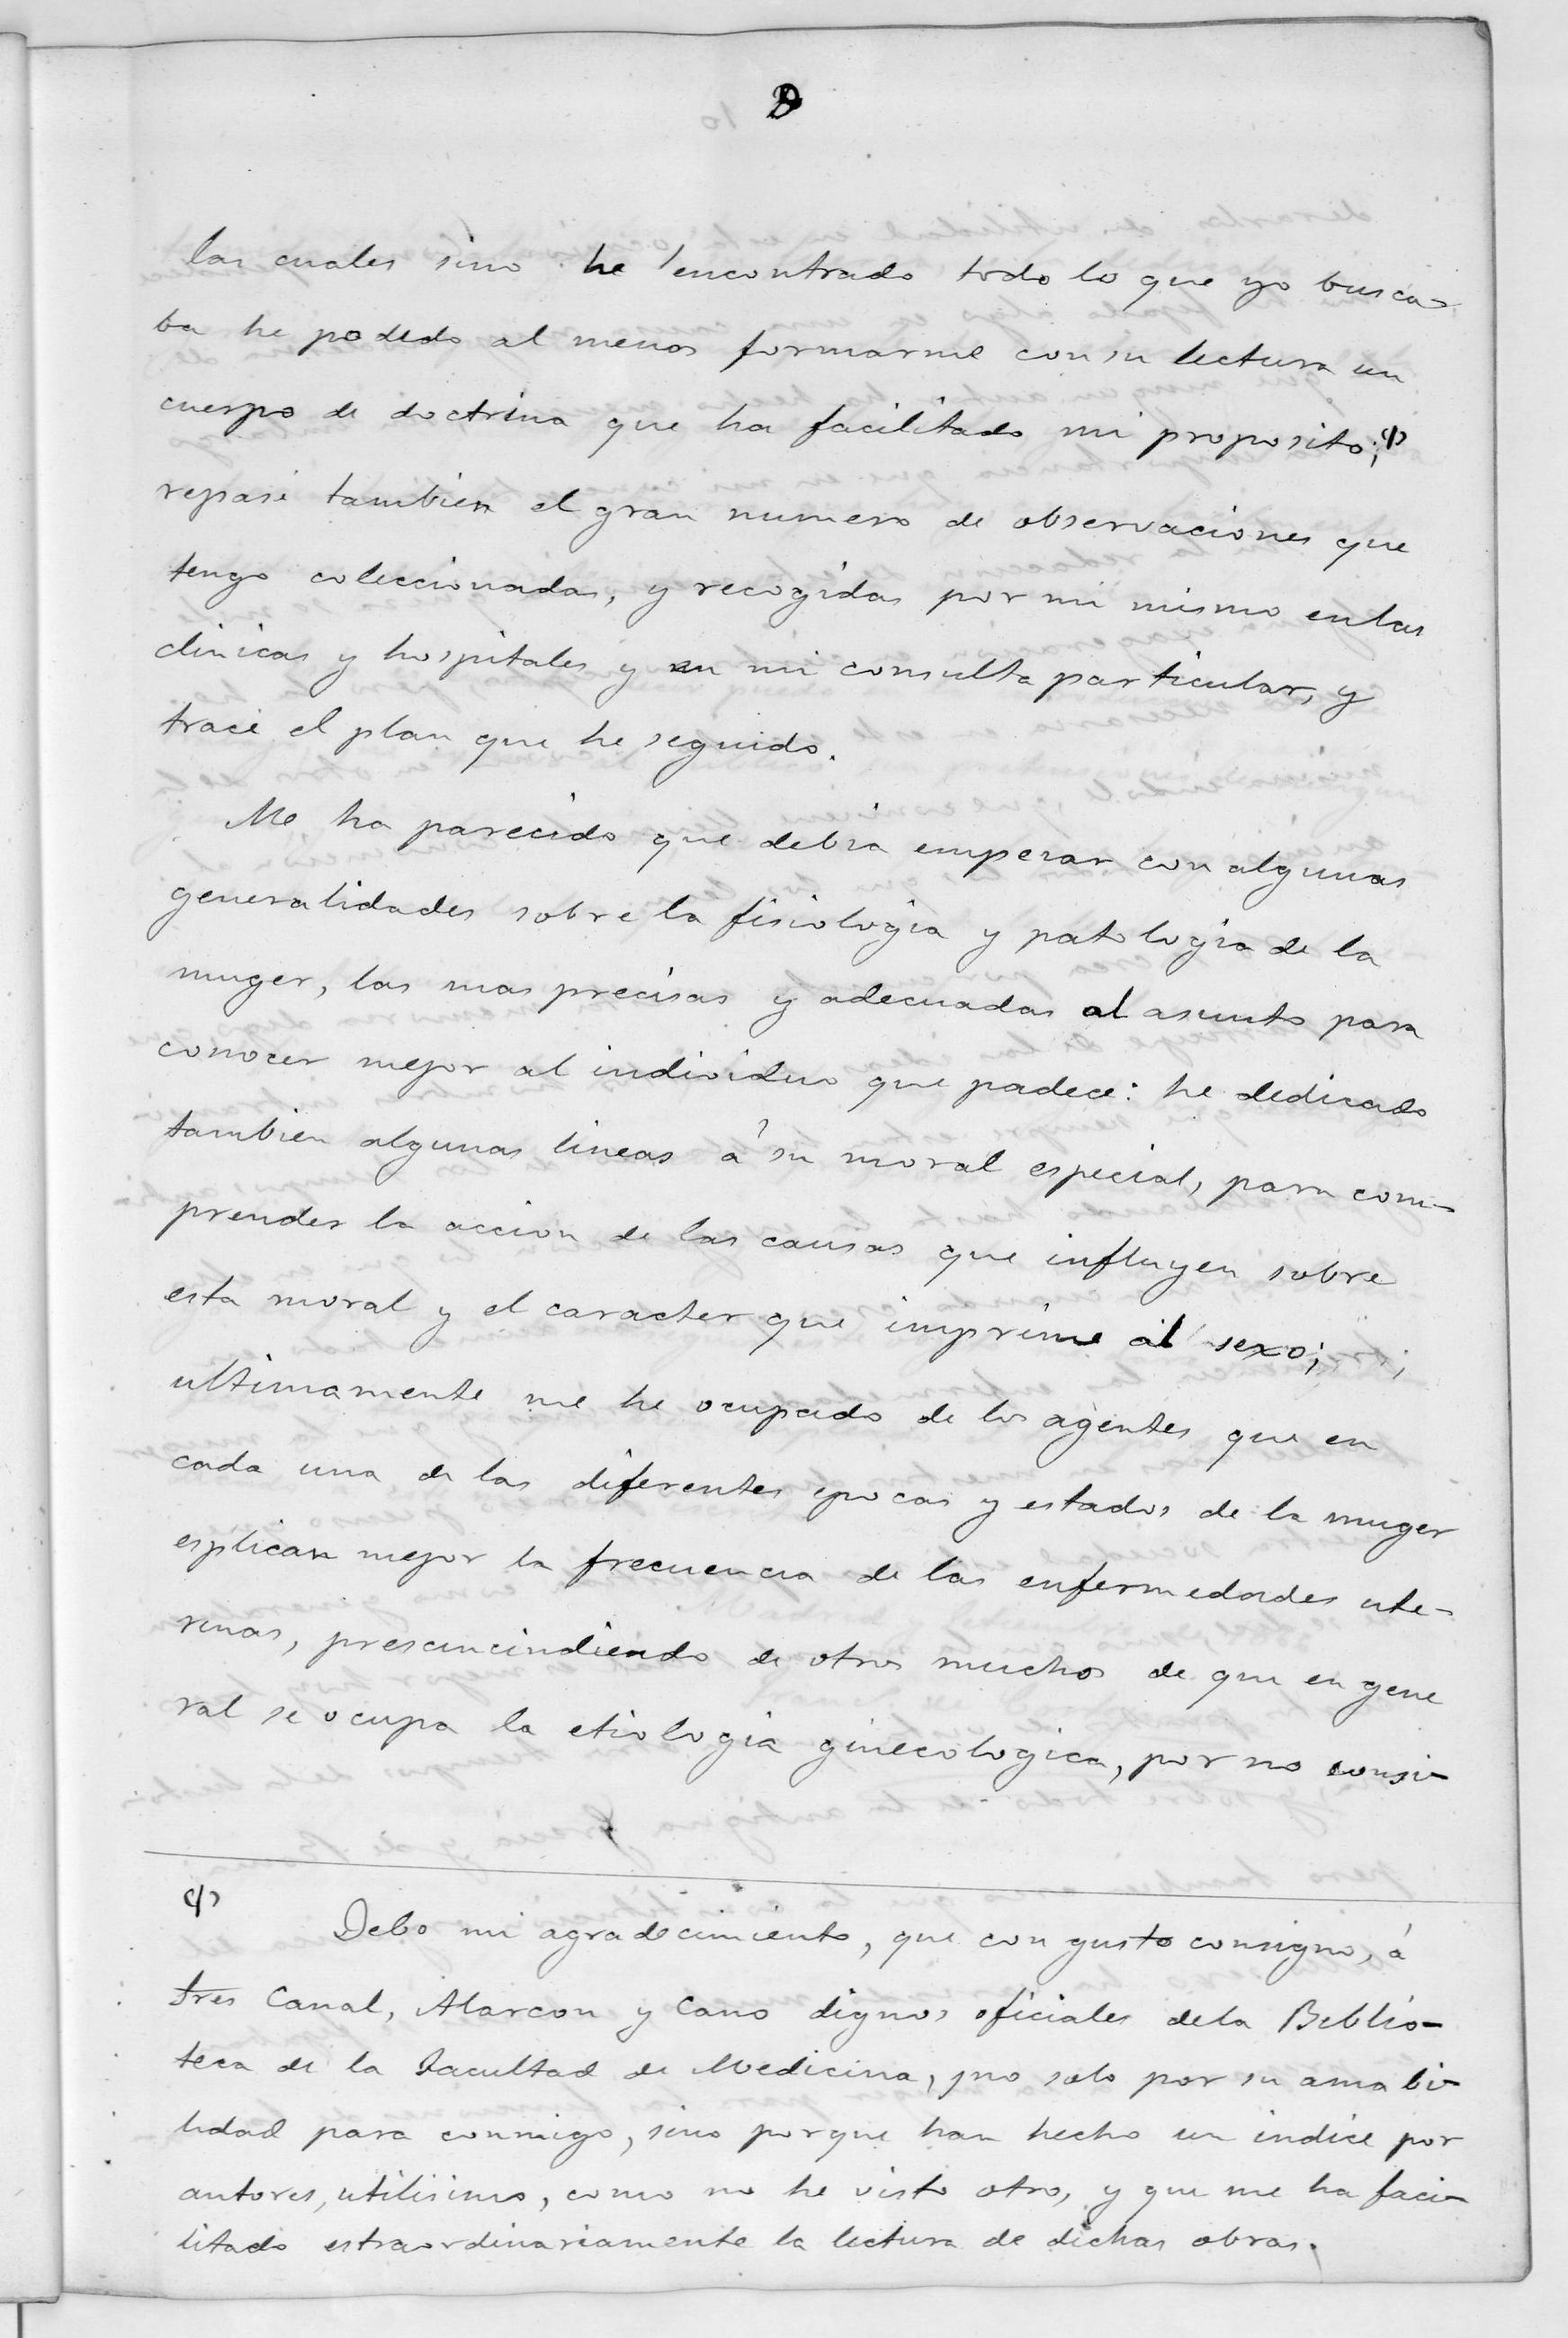 las cuales sino he encontrado todo lo que yo busca-
ba he podido al menos formarme con su lectura un
cuerpo de doctrina que ha facilitado mi proposito; (1)
repasé tambien el gran numero de observaciones que
tengo coleccionadas, y recogidas por mi mismo en las
clinicas y hospitales y en mi consulta particular, y
tracé el plan que he seguido.
Me ha parecido que debia empezar con algunas
generalidades sobre la fisiologia y patologia de la
muger, las mas precisas y adecuadas al asunto para
conocer mejor al individuo que padece: he dedicado
tambien algunas lineas á su moral especial, para com-
prender la accion de las causas que influyen sobre
esta moral y el caracter que imprime al sexo;
ultimamente me he ocupado de los agentes que en
cada una de las diferentes epocas y estados de la muger
esplican mejor la frecuencia de las enfermedades ute-
rinas, prescincindiendo de otros muchos de que en gene
ral se ocupa la etiologia ginecologica, por no consi-
(1) Debo mi agradecimiento, que con gusto consigno, á
Sres Canal, Alarcon y Cano dignos oficiales de la Biblio-
teca de la Facultad de Medicina, no solo por su amabi-
lidad para conmigo, sino porque han hecho un indice por
autores, utilisimo, como no he visto otro, y que me ha faci-
litado estraordinariamente la lectura de dichas obras.